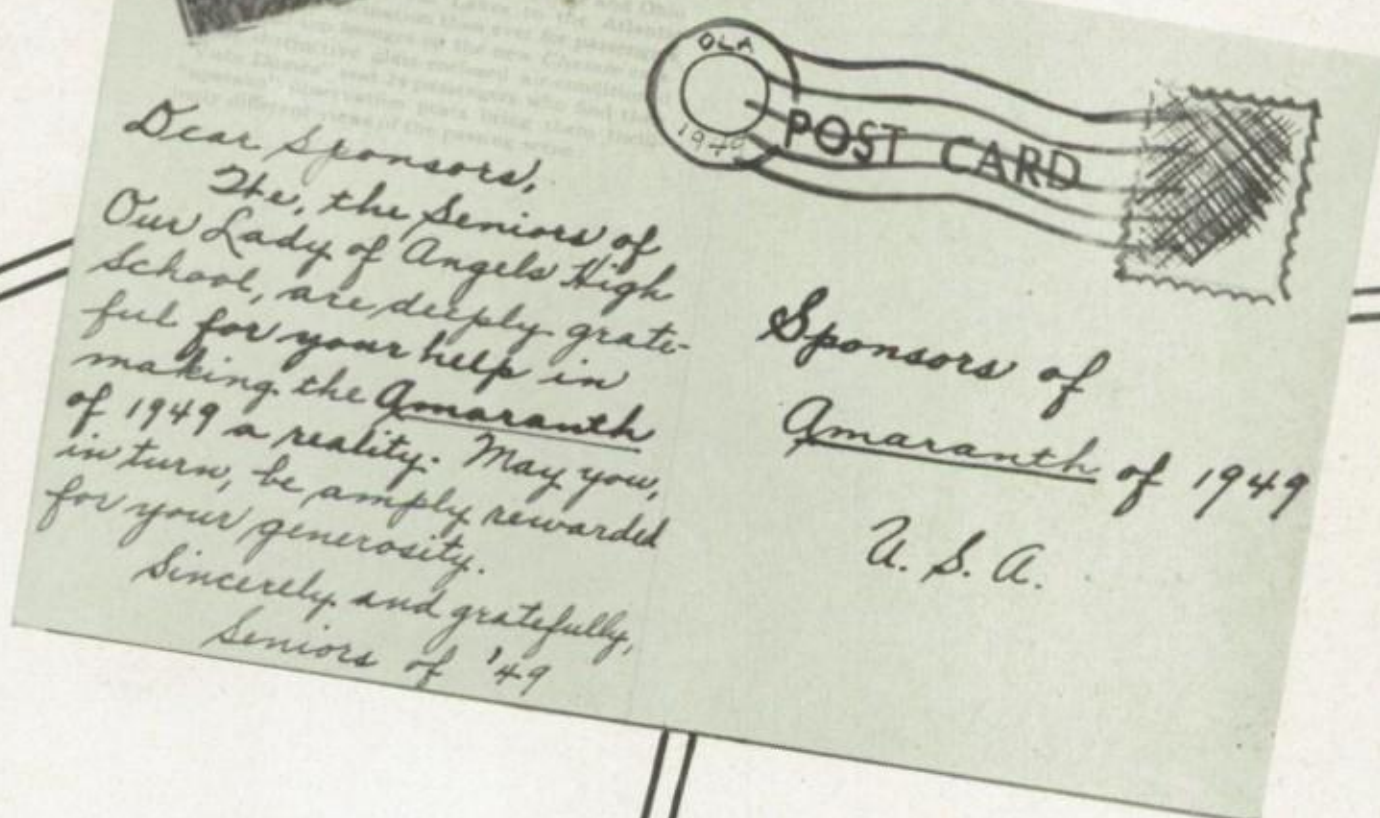 Dear Sponsors,
We, the Seniors of
Our Lady of Angels High
School, are deeply grate-
ful for your help in
making the Amaranth
of 1949 a reality. May you,
in turn, be amply rewarded
for your generosity.
Sincerely and gratefully,
Seniors of '49
OLA
1949
POST CARD
Sponsors of
Amaranth of 1949
U. S. A.